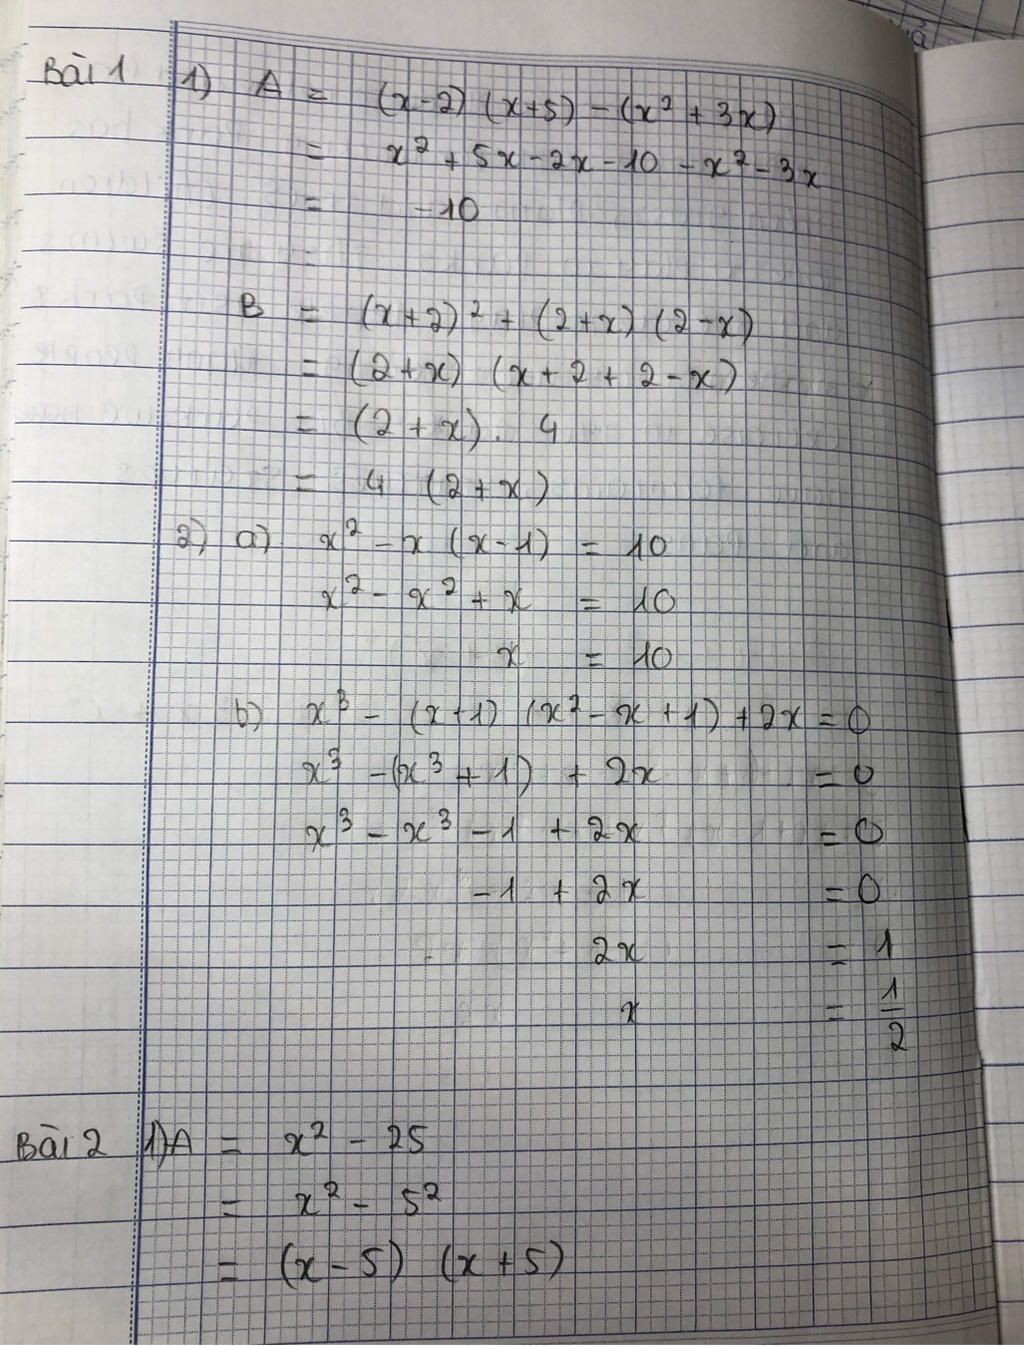 Bài 1 1) A = (x-2) (x+5) - (x² + 3x)
= x² + 5x - 2x - 10 - x² - 3x
= -10
=
B = (x+2)² + (2+x) (2-x)
= (2+x) (x+2+2-x)
= (2+x). 4
= 4 (2+x)
2) a) x² - x (x-1) = 10
x² - x² + x = 10
x = 10
b) x³ - (x+1) (x² - x + 1) + 2x = 0
x³ - (x³ + 1) + 2x = 0
x³ - x³ - 1 + 2x = 0
-1 + 2x = 0
2x = 1
x = 1/2
Bài 2 1) A = x² - 25
= x² - 5²
= (x-5) (x+5)